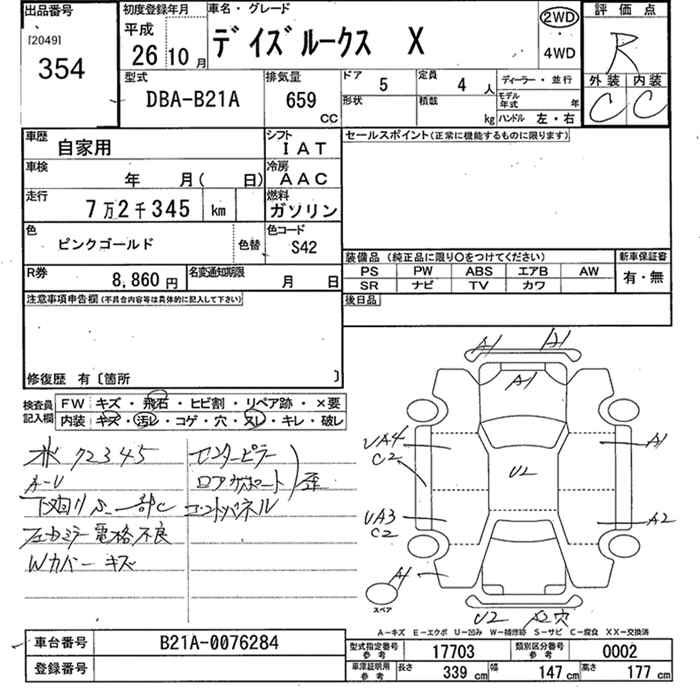 出品番号
[2049]
354
初度登録年月
平成
26 10月
車名・グレード
デイズルークス X
2WD
・
4WD
評価点
R
外装 内装
C C
型式
DBA-B21A
排気量
659
CC
ドア 5
定員 4 人
ディーラー・並行
形状
積載 kg
モデル年式 年
ハンドル 左・右
車歴
自家用
シフト
IAT
車検
年 月( 日)
冷房
AAC
走行
7万2千345 km
燃料
ガソリン
色
ピンクゴールド
色替
色コード
S42
R券
8,860円
名変通知期限
月 日
セールスポイント(正常に機能するものに限ります)
装備品(純正品に限り○をつけてください)
PS PW ABS エアB AW
SR ナビ TV カワ
新車保証書
有・無
後日品
注意事項申告欄(不具合内容等は具体的に記入して下さい)
修復歴 有〔箇所 〕
検査員記入欄
FW キズ・飛石・ヒビ割・リペア跡・×要
内装 キズ・汚レ・コゲ・穴・スレ・キレ・破レ
72345
A-U
下廻りS 一部C
電格不良
Wカバーキズ
センターピラー
ロアサポート
コアパネル
歪
A1 A1
A1
UA4
C2
A1
U2
UA3
C2
A2
A1
スペア
U2 A2穴
A-キズ E-エクボ U-凹み W-補修跡 S-サビ C-腐食 XX-交換済
車台番号
B21A-0076284
登録番号
型式指定番号 参考
17703
類別区分番号 参考
0002
車庫証明用 参考
長さ 339 cm
幅 147 cm
高さ 177 cm